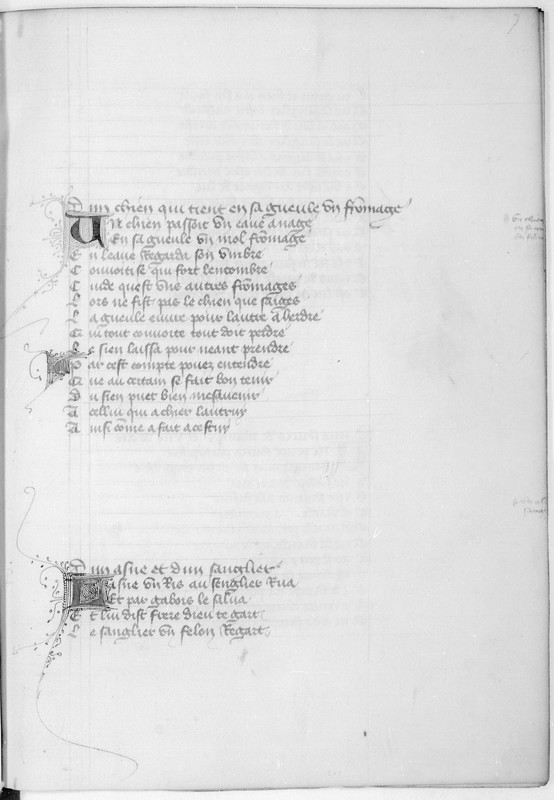 Dun chien qui tient en sa gueule vn fromage
Un chien passoit vn eaue a nage
En sa gueule vn mol fromage
En leaue Regarda son vmbre
Couuoitise qui fort lencombre
Cuide quest vns autres fromages
Lors ne fist pas le chien que saiges
La gueule euure pour lautre aherdre
Qui tout couuoite tout doit perdre
Le sien laissa pour neant prendre
Par cest compte pouez entendre
Que au certain se fait bon tenir
Du sien puet bien mesauenir
A cellui qui a chier lautruy
Ainsi come a fait a cestuy
Dun asne et dun sanglier
Lasne vn Ris au senglier Rua
Et par gabois le salua
Et lui dist frere dieu te gart
Le sanglier vn felon Regart